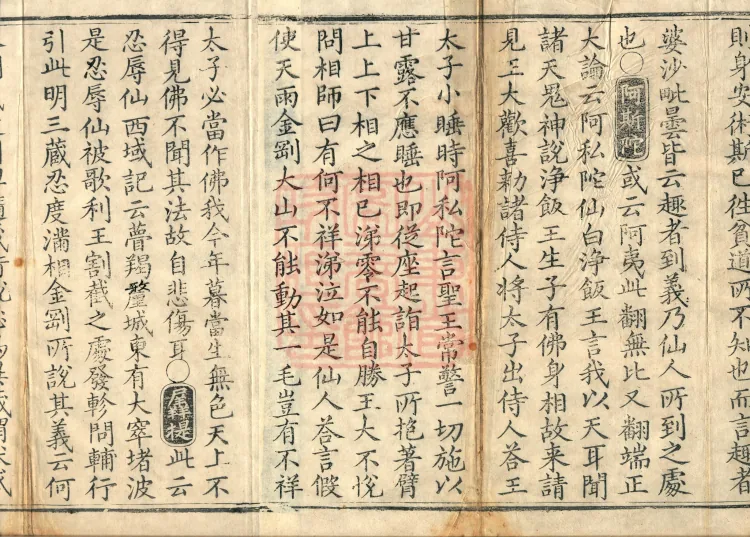 則身安休斯已徃貧道所不知也而言趣者
婆沙毗曇皆云趣者到義乃仙人所到之處
也○阿斯陀或云阿夷此翻無比又翻端正
大論云阿私陀仙白淨飯王言我以天耳聞
諸天鬼神說淨飯王生子有佛身相故来請
見王大歡喜勑諸侍人將太子出侍人荅王
太子小睡時阿私陀言聖王常警一切施以
甘露不應睡也即從座起詣太子所抱著臂
上上下相之相已涕零不能自勝王大不悅
問相師曰有何不祥涕泣如是仙人荅言假
使天雨金剛大山不能動其一毛豈有不祥
太子必當作佛我今年暮當生無色天上不
得見佛不聞其法故自悲傷耳○羼提此云
忍辱仙西域記云瞢揭釐城東有大窣堵波
是忍辱仙被歌利王割截之處發軫問輔行
引此明三藏忍度滿相金剛所說其義云何